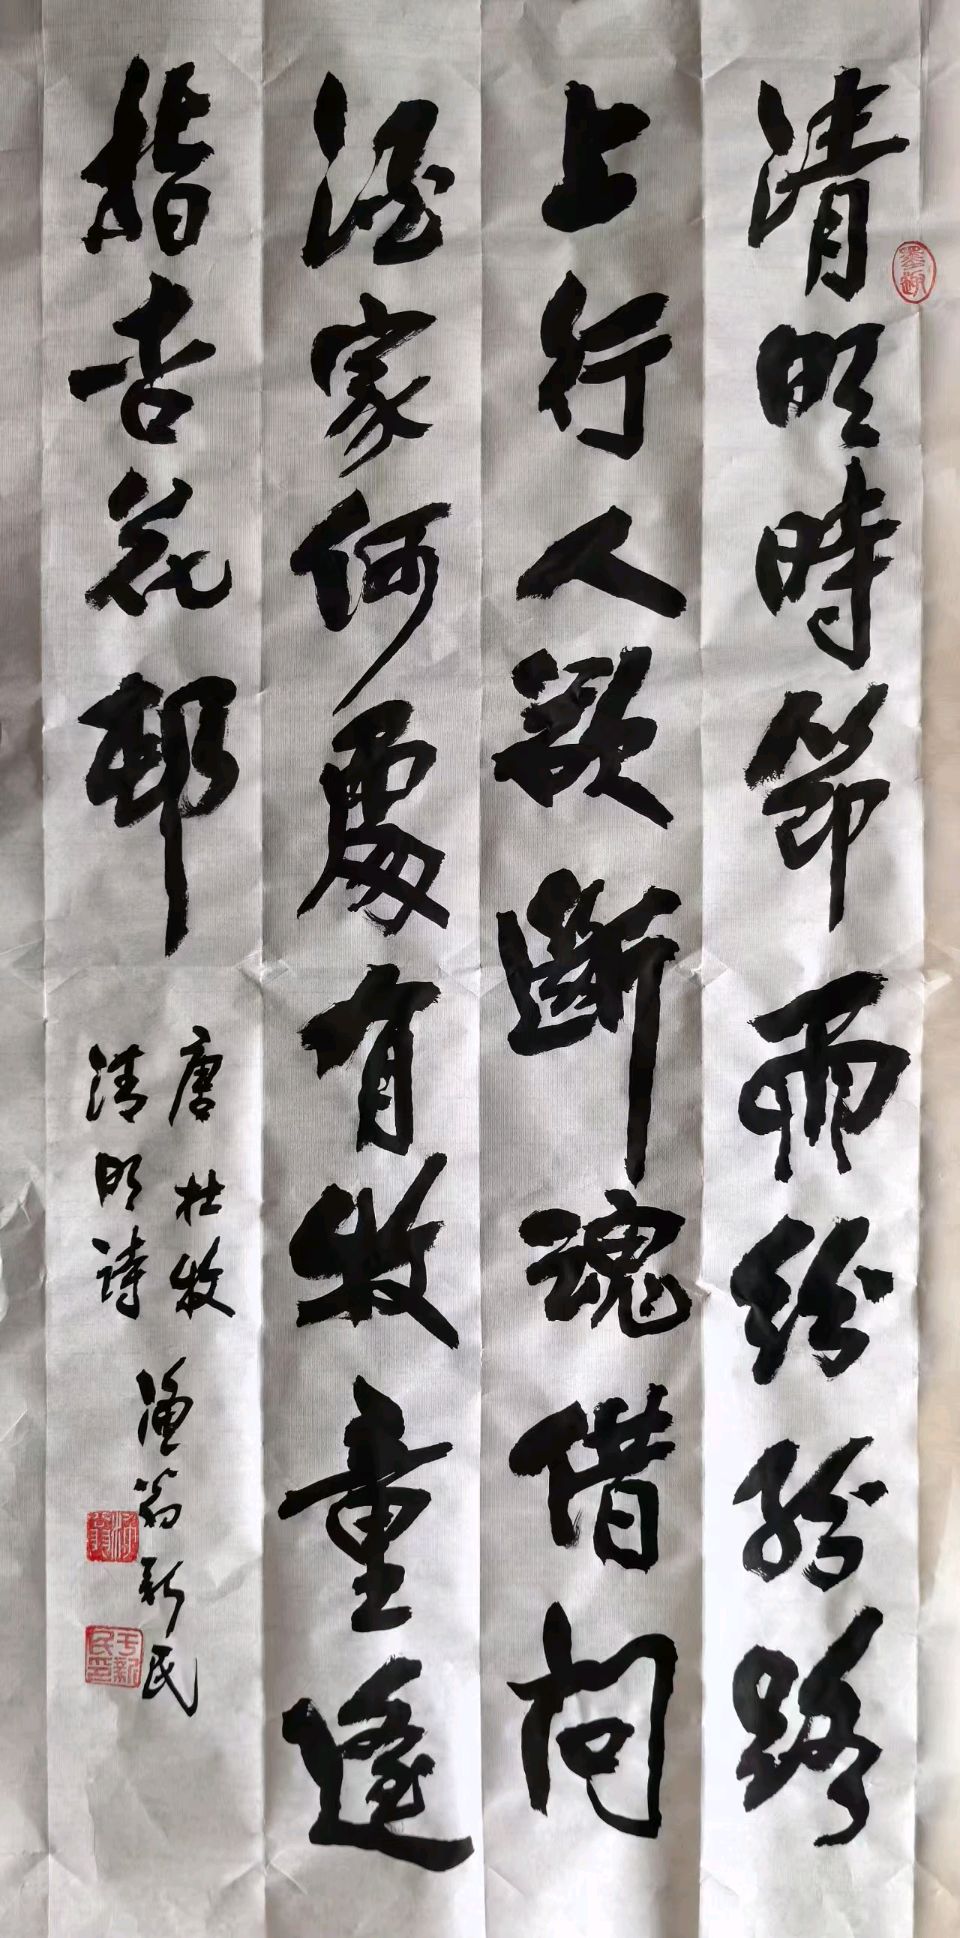 清明時節雨紛紛路
上行人欲斷魂借問
酒家何處有牧童遥
指杏花邨
唐杜牧
清明詩
漁翁新民
墨趣
于新民印